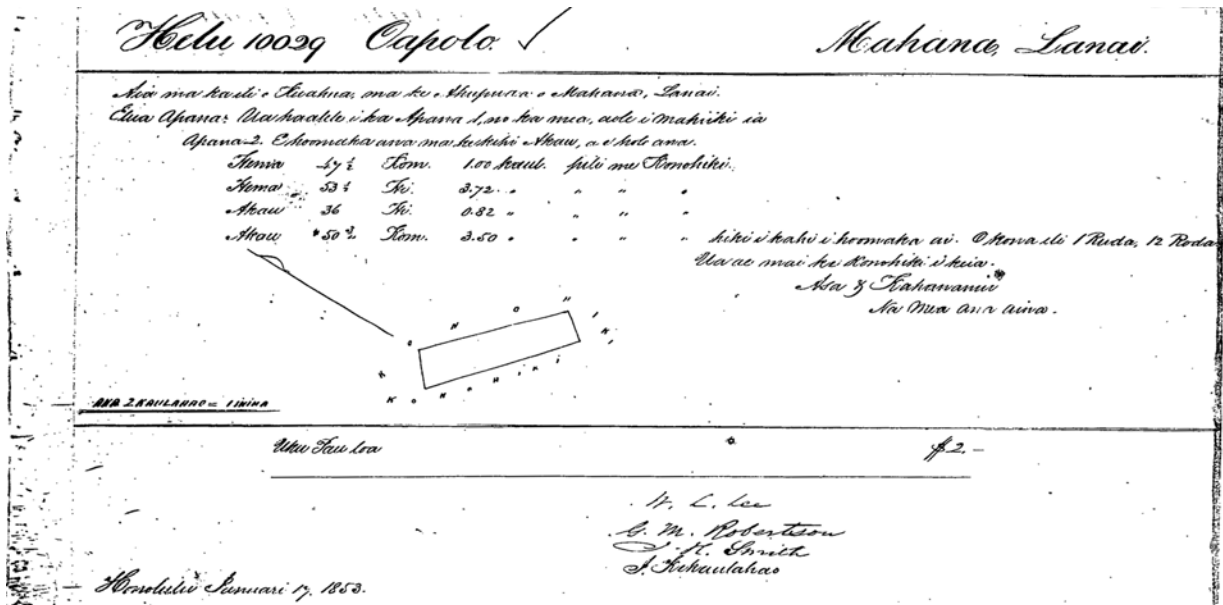 Helu 10029 Oapolo. Mahana, Lanai.
Aia ma ka ili o ma ke Ahupuaa o Mahana, Lanai.
Elua Apana: Ua haalele i ka Apana 1, no ka mea, aole i mahiiki ia
Apana 2. E hoomaka ana ma ke kihi Akau, a e holo ana.
Hema 47 ½ Kom. 1.00 kaul. pili me Konohiki.
Hema 53 ½ Hi. 3.72 " " " "
Akau 36 Hi. 0.82 " " " "
Akau 50 ½ Kom. 3.50 " " " " hiki i kahi i hoomaka ai. O kona ili 1 Ruda, 12 Roda
Ua ae mai ke Konohiki i keia.
Asa & Kahawanui
Na Mea ana aina.
KONOHIKI
KONOHIKI
ANA 2 KAULAHAO = 1 INIHA
Uku Pau loa $2.—
W. L. Lee
G. M. Robertson
J. H. Smith
J. Kekaulahao
Honolulu Januari 17, 1853.